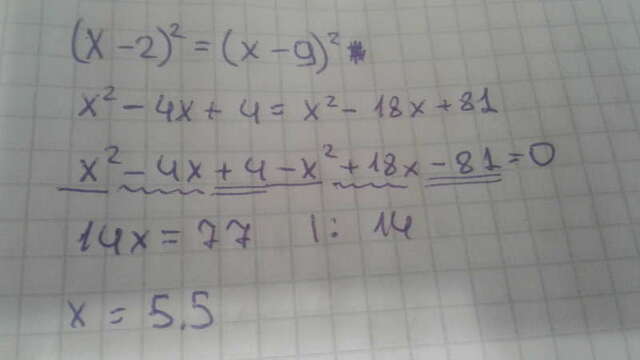 (x - 2)² = (x - 9)²
x² - 4x + 4 = x² - 18x + 81
x² - 4x + 4 - x² + 18x - 81 = 0
14x = 77 | : 14
x = 5.5